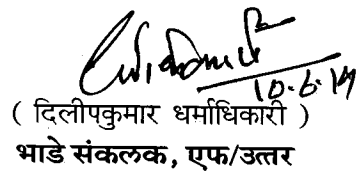 10.6.14
( दिलीपकुमार धर्माधिकारी )
भाडे संकलक, एफ/उत्तर